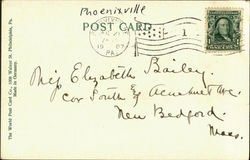 Phoenixville
POST CARD
1907
PA.
1
Miss Elizabeth Bailey.
Cor South & Acushnet Ave.
New Bedford
Mass.
The World Post Card Co., Philadelphia, Pa.
Made in Germany.